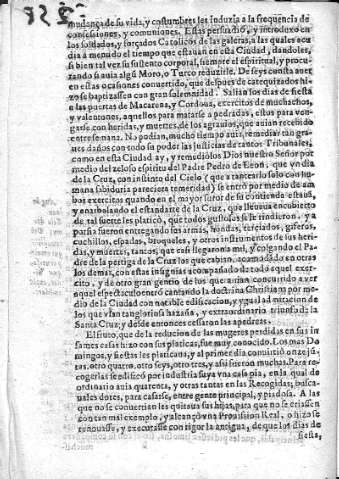 mudança de su vida, y costumbres les induzia a la frequencia de
confessiones, y comuniones. Esto persuadió, y introduxo en
los soldados, y forçados Catolicos de las galeras, a las quales acu
dia a menudo el tiempo que estauan en esta Ciudad, dandoles,
si bien tal vez su sustento corporal, siempre el espiritual, y procu-
rando si auia algũ Moro, o Turco reduzirle. De seys consta auer
en estas ocasiones conuertido, que despues de catequizados hi-
zo se baptizassen con gran solemnidad. Salian los dias de fiesta
a las puertas de Macarena, y Cordoua, exercitos de muchachos,
y valentones, aquellos para matarse a pedradas, estos para ven-
garse con heridas, y muertes, de los agrauios, que auian recebido
entre semana. No podian, mucho tiempo auia, remediar tan gra-
ues daños con todo su poder las justicias de tantos Tribunales,
como en esta Ciudad ay, y remediólos Dios nuestro Señor por
medio del zeloso espiritu del Padre Pedro de Leon, que vn dia
de la Cruz, con instinto del Cielo (que a tantearlo solo con hu-
mana sabiduria pareciera temeridad) se entró por medio de am
bos exercitos quando en el mayor furor de su contienda estauã,
y enarbolando el estandarte de la Cruz, que lleuaua encubierto
de tal suerte les platicó, que todos gustosos se le rindieron, y a
porfia fueron entregando las armas, hondas, terciados, giferos,
cuchillos, espadas, broqueles, y otros instrumentos de sus heri-
das, y muertes, tantos, que casi llegaron a mil, y colgando el Pa-
dre de la pertiga de la Cruz los que cabian, acomodados en otras
los demas, con estas insignias acompañado de todo aquel exer-
cito, y de otro gran gentio de los que auian concurrido a ver
aquel espectaculo entró cantando la doctrina Christiana por me
dio de la Ciudad con notable edificacion, y ygual admiracion de
los que vian tan gloriosa hazaña, y extraordinario triunfo de la
Santa Cruz; y desde entonces cessaron las pedreas.
El fruto, que de la reducion de las mugeres perdidas en sus in
fames casas hizo con sus platicas, fue muy conocido. Los mas Do
mingos, y fiestas les platicaua, y al primer dia conuirtió onze jũ-
tas, otro quatro, otro seys, otro tres, y assi fueron muchas. Para re-
cogerlas se edificó por industria suya vna casa pia, en la qual de
ordinario auia quarenta, y otras tantas en las Recogidas; busca-
uales dotes, para casarse, entre gente principal, y piadosa. A las
que no se conuertian les quitaua sus hijas, para que no se criassen
con tan mal exemplo, y alcançó vna Prouision Real, o hizo se
renouasse, y executasse con rigor la antigua, de que los dias de
fiesta,